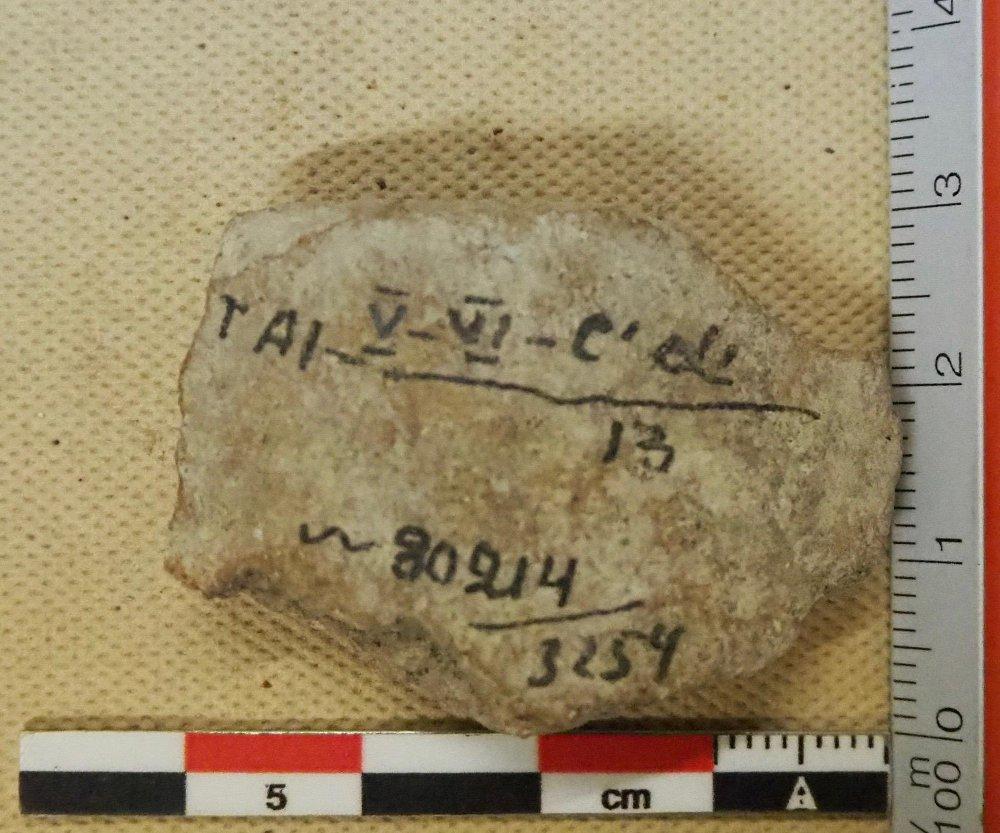 TAI-V-VI-C'al
13
~80214
3254
5 cm
4
3
2
1
0
m
100